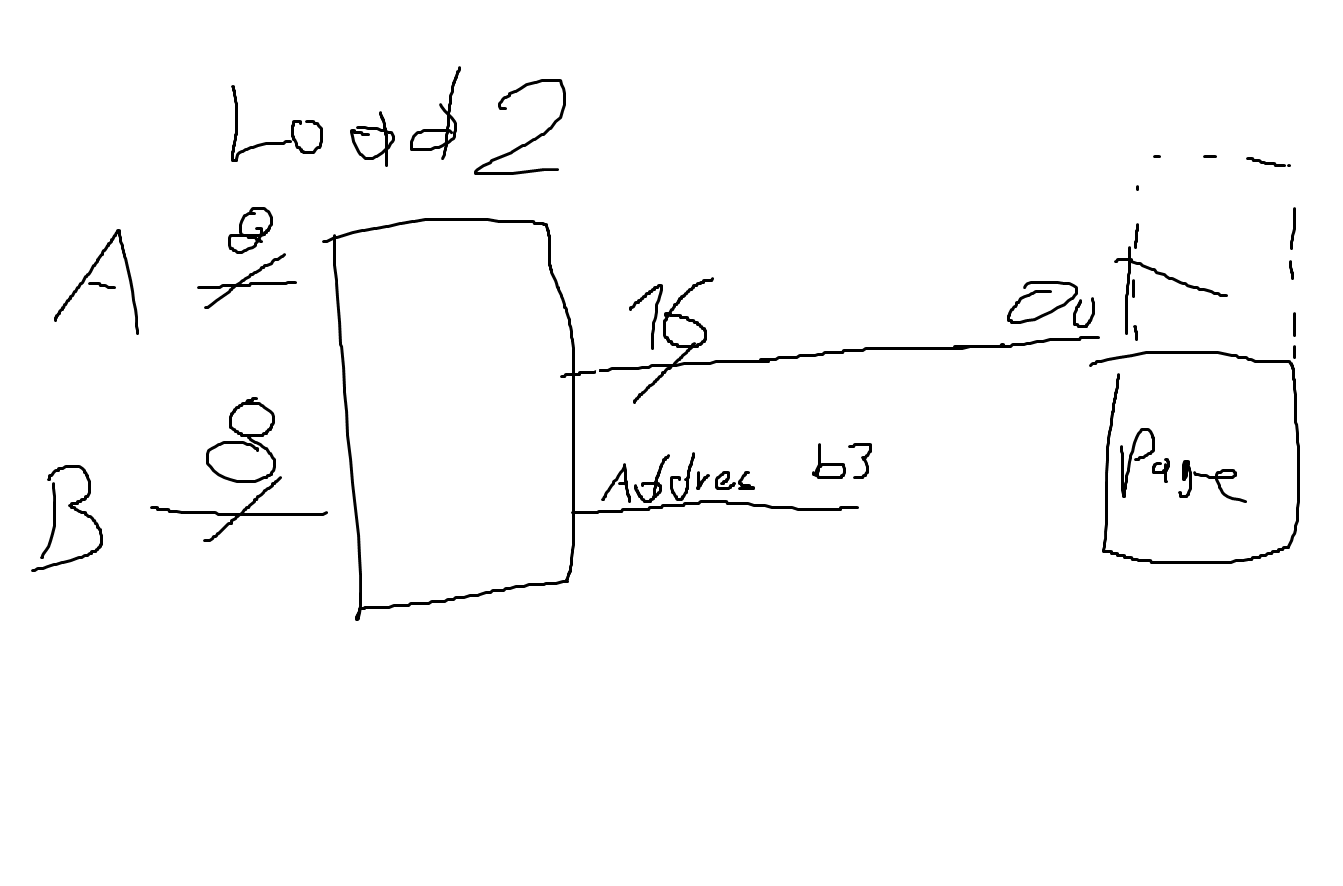 Load 2
A 8
16
B 8
Addres b3
Page